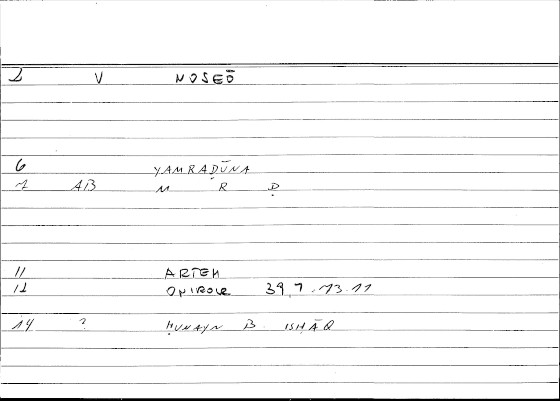 2 V NOSEŌ
6 YAMRAḌŪNA
1 AB M R Ḍ
11 ARTEM
12 ONIROCR 39,7-13.11
14 ? ḤUNAYN B. ISḤĀQ